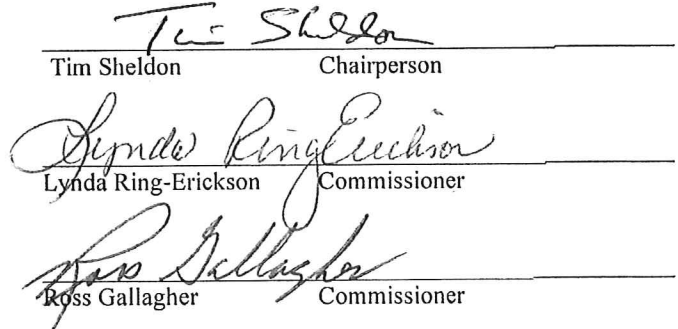 Tim Sheldon
Tim Sheldon Chairperson
Lynda Ring Erickson
Lynda Ring-Erickson Commissioner
Ross Gallagher
Ross Gallagher Commissioner